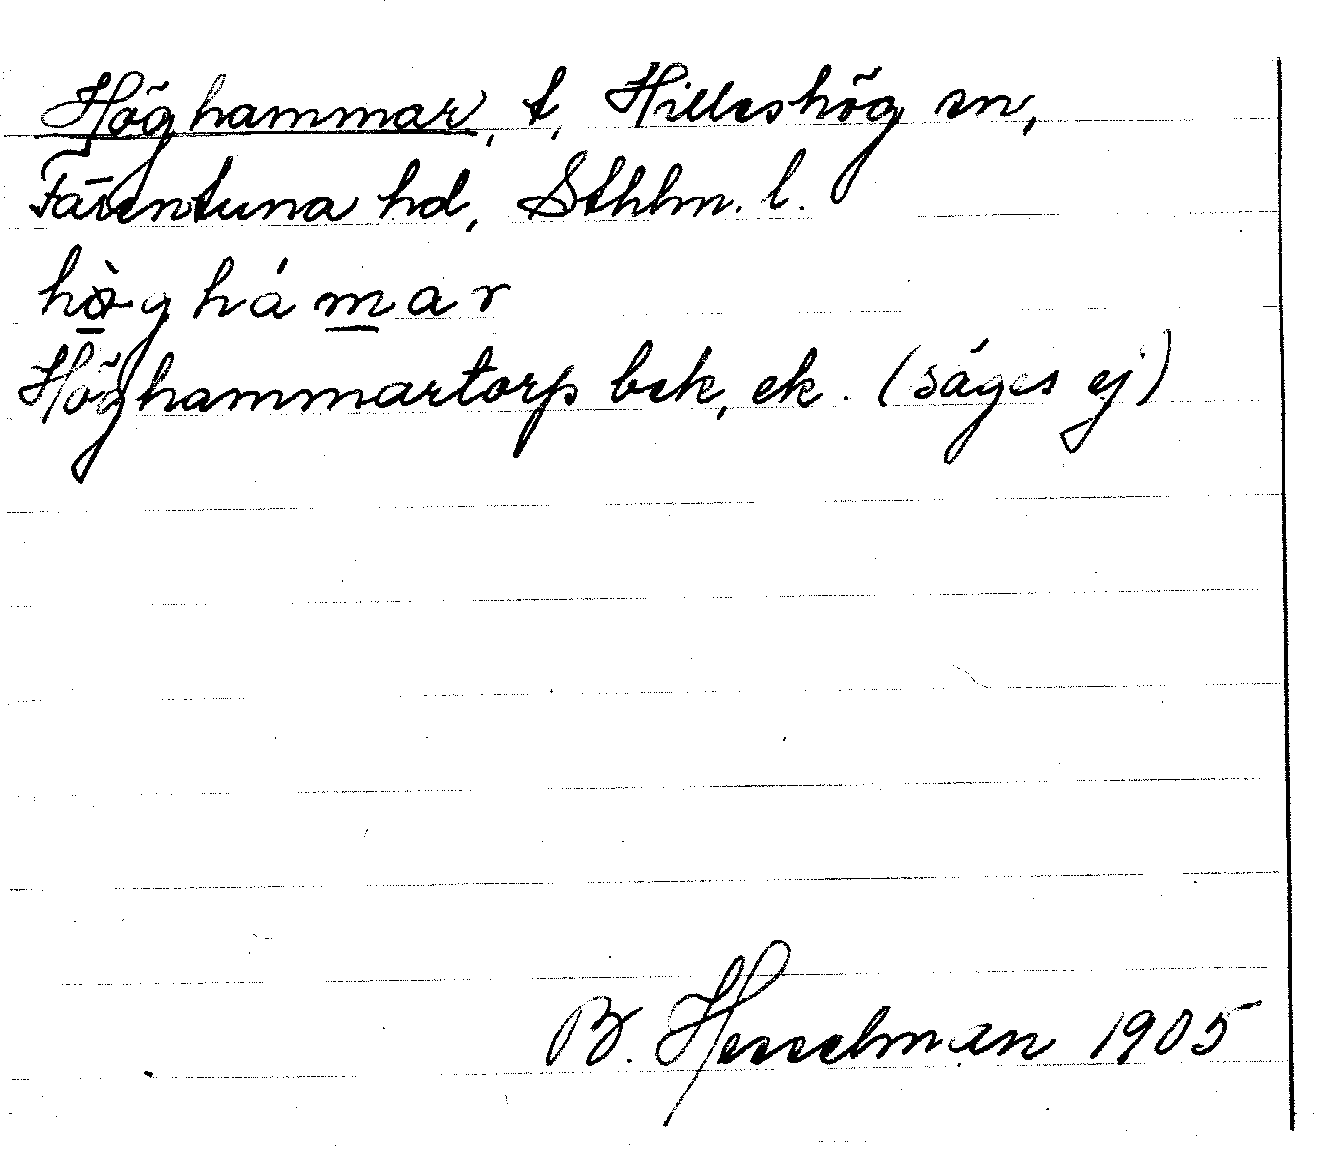 Höghammar, t, Hilleshög sn,
Färentuna hd, Sthlm. l.
hø̀g hámar
Höghammartorp bek, ek. (säges ej)
B. Hesselman 1905